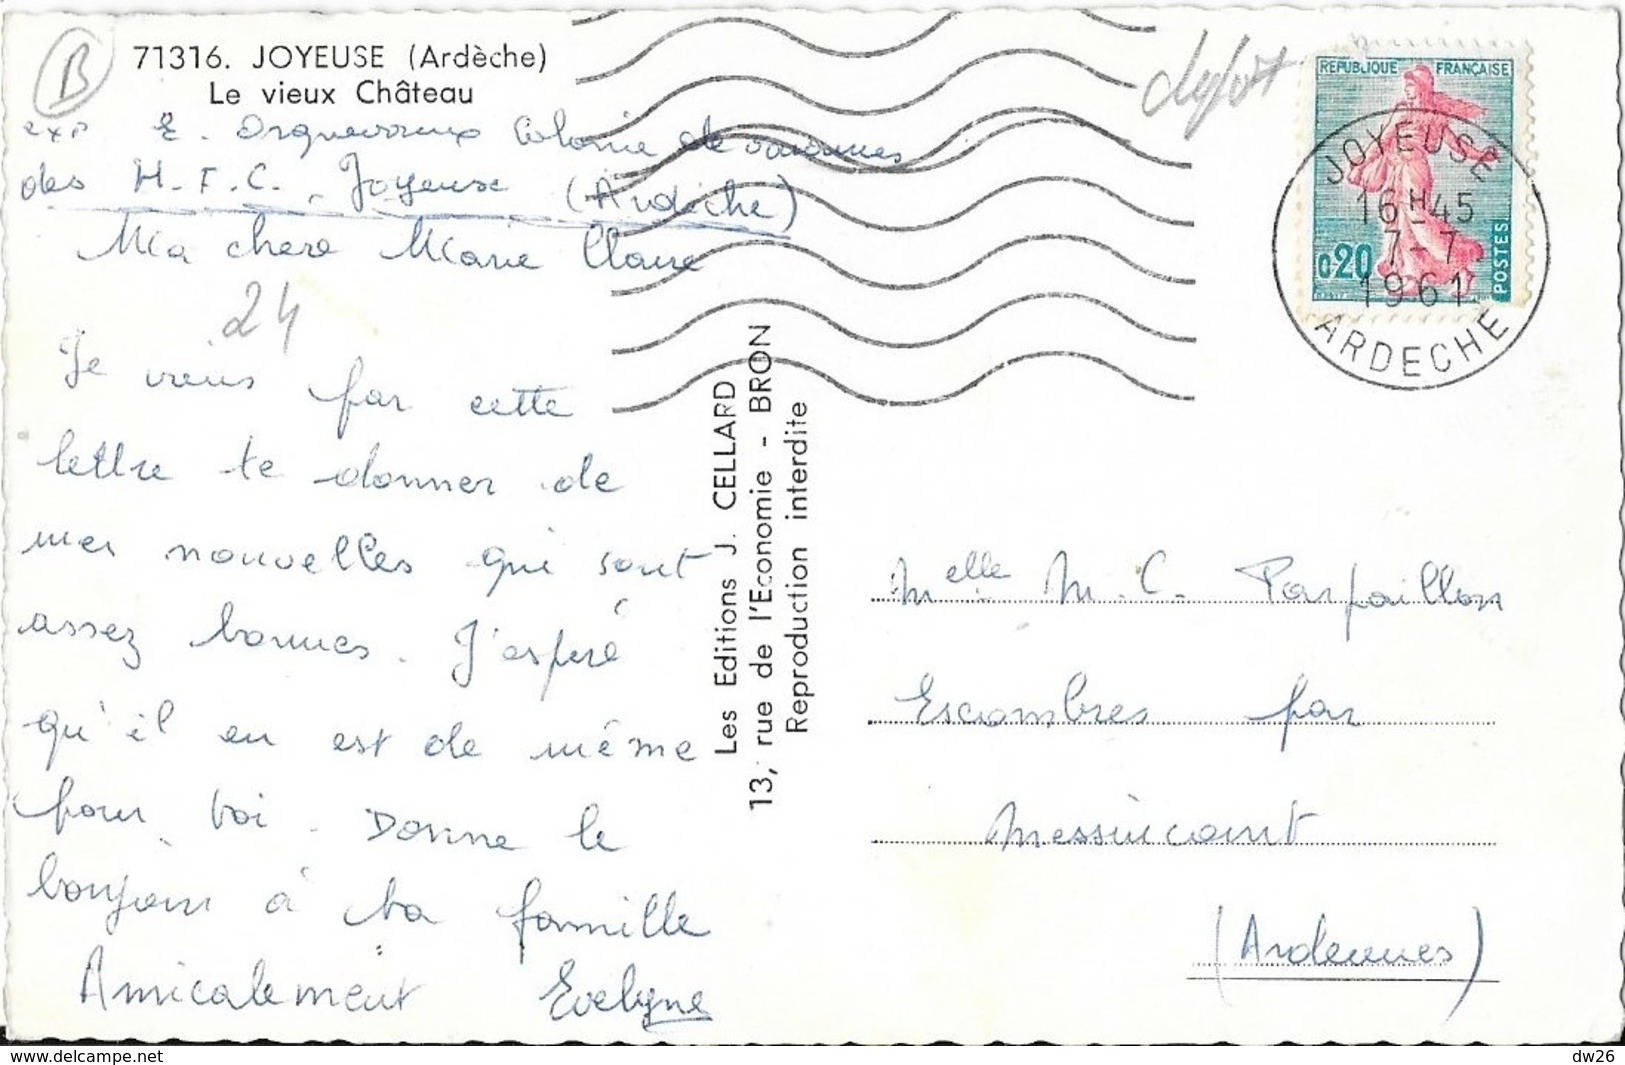 B
71316. JOYEUSE (Ardèche)
Le vieux Château
exp E. Colonie de vacances
des H.F.C. Joyeuse (Ardèche)
Ma chere Marie Claire
24
Je viens par cette
lettre te donner de
mes nouvelles qui sont
assez bonnes. J'espère
qu'il en est de même
pour toi. Donne le
bonjour à ta famille
Amicalement Evelyne
Les Editions J. CELLARD
13, rue de l'Economie - BRON
Reproduction interdite
REPUBLIQUE FRANÇAISE
0,20
POSTES
JOYEUSE
16H45
7-7
1961
ARDECHE
Melle M.C. Parpaillon
Escombres par
Messincourt
(Ardennes)
delcampe.net
dw26